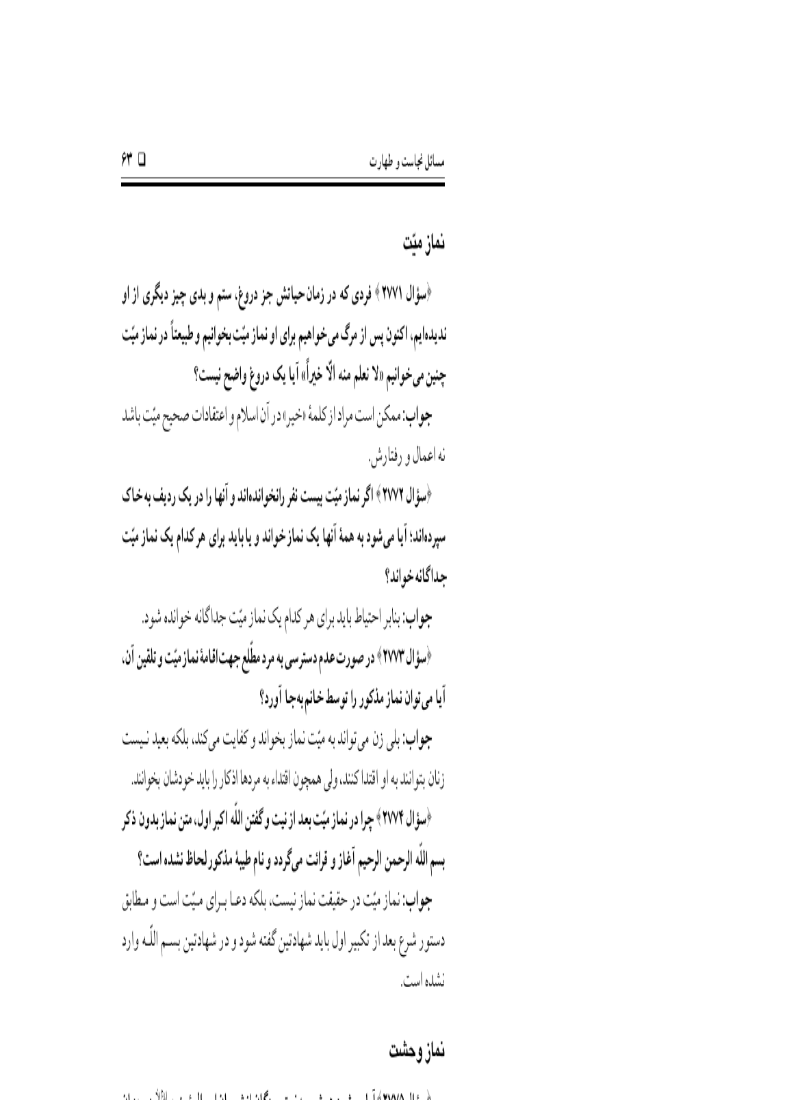 مسائل نجاست و طهارت □ ۶۳
نماز میّت
﴿سؤال ۲۷۷۱﴾ فردی که در زمان حیاتش جز دروغ، ستم و بدی چیز دیگری از او
ندیده‌ایم، اکنون پس از مرگ می‌خواهیم برای او نماز میّت بخوانیم و طبیعتاً در نماز میّت
چنین می‌خوانیم «لا نعلم منه الّا خیراً» آیا یک دروغ واضح نیست؟
جواب: ممکن است مراد از کلمۀ «خیر» در آن اسلام و اعتقادات صحیح میّت باشد
نه اعمال و رفتارش.
﴿سؤال ۲۷۷۲﴾ اگر نماز میّت بیست نفر را نخوانده‌اند و آنها را در یک ردیف به خاک
سپرده‌اند؛ آیا می‌شود به همۀ آنها یک نماز خواند و یا باید برای هر کدام یک نماز میّت
جداگانه خواند؟
جواب: بنابر احتیاط باید برای هر کدام یک نماز میّت جداگانه خوانده شود.
﴿سؤال ۲۷۷۳﴾ در صورت عدم دسترسی به مرد مطّلع جهت اقامۀ نماز میّت و تلقین آن،
آیا می‌توان نماز مذکور را توسط خانم به‌جا آورد؟
جواب: بلی زن می‌تواند به میّت نماز بخواند و کفایت می‌کند، بلکه بعید نیست
زنان بتوانند به او اقتدا کنند، ولی همچون اقتداء به مردها اذکار را باید خودشان بخوانند.
﴿سؤال ۲۷۷۴﴾ چرا در نماز میّت بعد از نیت و گفتن اللّه اکبر اول، متن نماز بدون ذکر
بسم اللّه الرحمن الرحیم آغاز و قرائت می‌گردد و نام طیبۀ مذکور لحاظ نشده است؟
جواب: نماز میّت در حقیقت نماز نیست، بلکه دعا برای میّت است و مطابق
دستور شرع بعد از تکبیر اول باید شهادتین گفته شود و در شهادتین بسم اللّه وارد
نشده است.
نماز وحشت
﴿سؤال ۲۷۷۵﴾